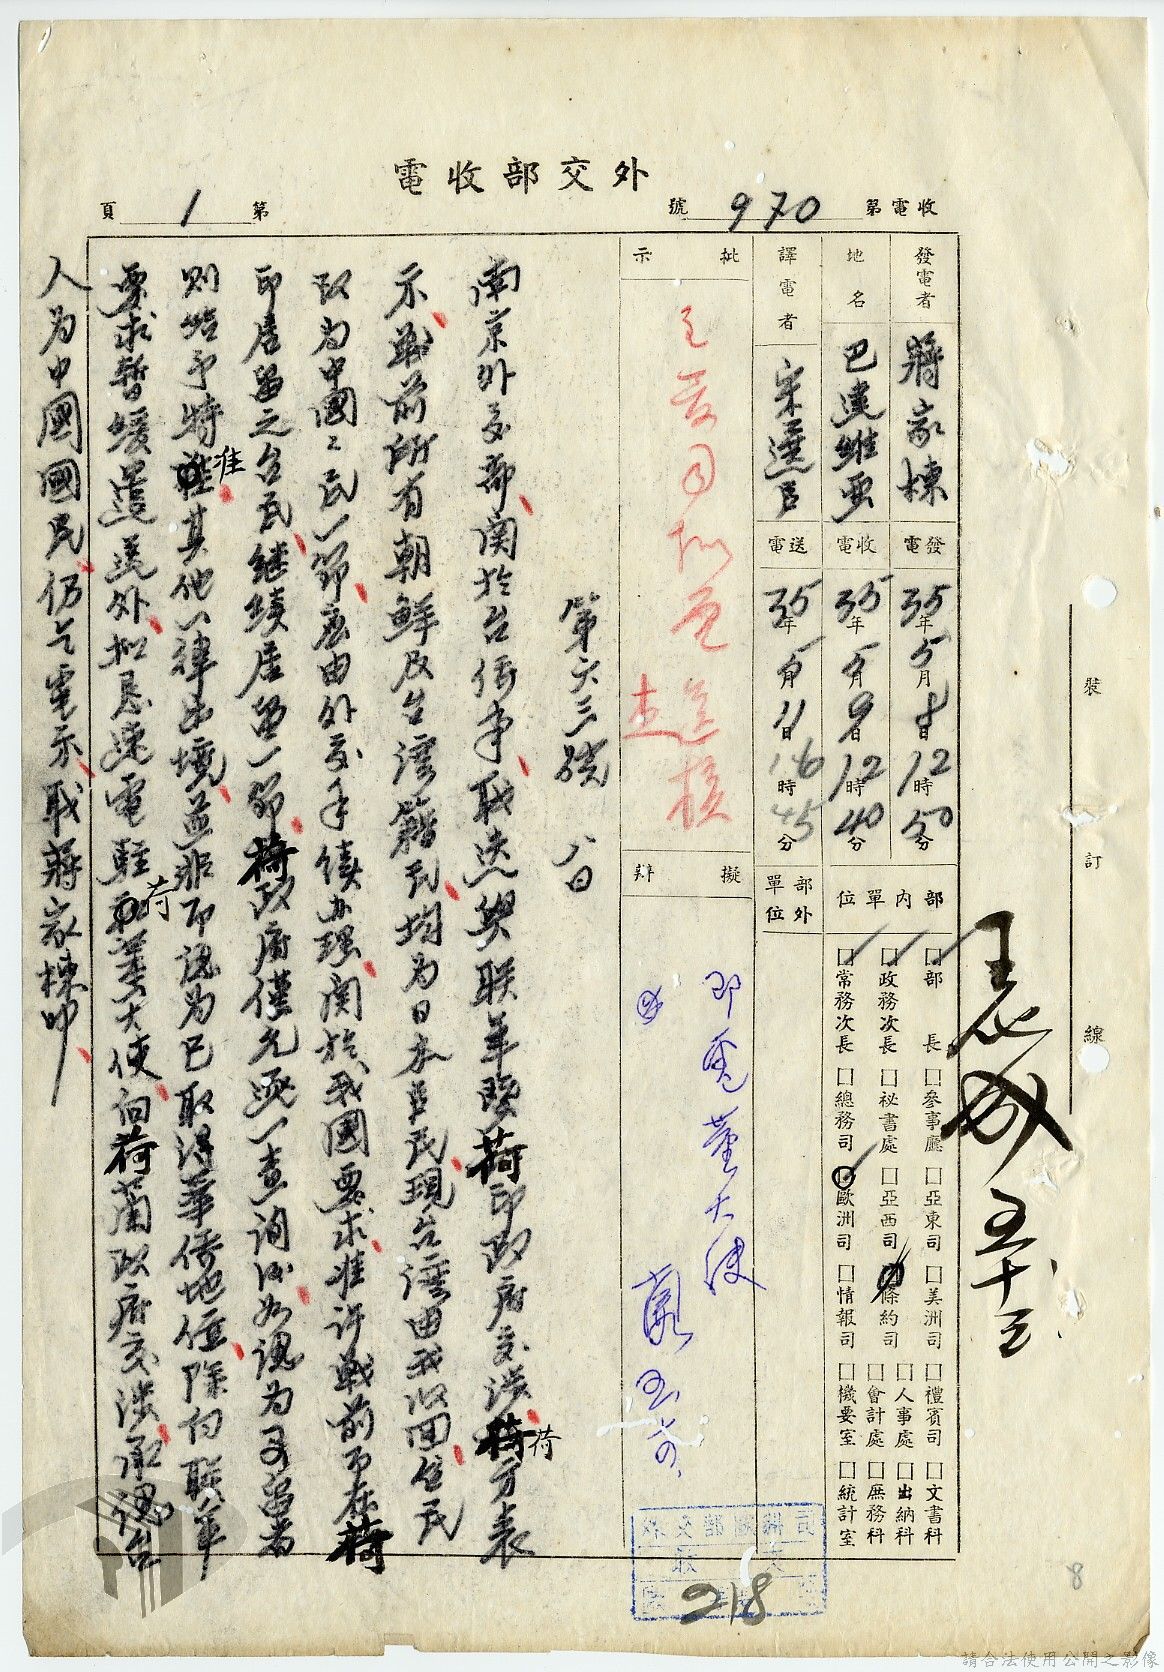 外交部收電
收電第970號
第1頁
發電者 蔣家棟
發電 35年5月8日12時50分
地名 巴達維亞
收電 35年5月9日12時40分
譯電者 宋選占
送電 35年5月11日16時45分
部內單位
□部長 □參事廳 □亞東司 □美洲司 □禮賓司 □文書科
□政務次長 □祕書處 □亞西司 □條約司 □人事處 □出納科
□常務次長 □總務司 □歐洲司 □情報司 □會計處 □庶務科
□機要室 □統計室
部外單位
批示
擬辦
即電董大使
第六三號 八日
南京外交部關於台僑事職迭與联軍暨荷印政府交涉荷荷方表
示戰前所有朝鮮及台灣籍民均為日本臣民現台灣由我收回住民
改為中國々民一節應由外交手續办理關於我國要求准許戰前而在荷
印居留之台民继續居留一節荷政府僅允逐一查詢後如認为可留者
則給予特准其他一律出境並非即認为已取得華僑地位除向联軍
要求暫緩遣送外拟恳速電駐荷董大使向荷蘭政府交涉承認台
人为中國國民仍乞電示職蔣家棟叩
裝訂線
218
8
請合法使用公開之影像